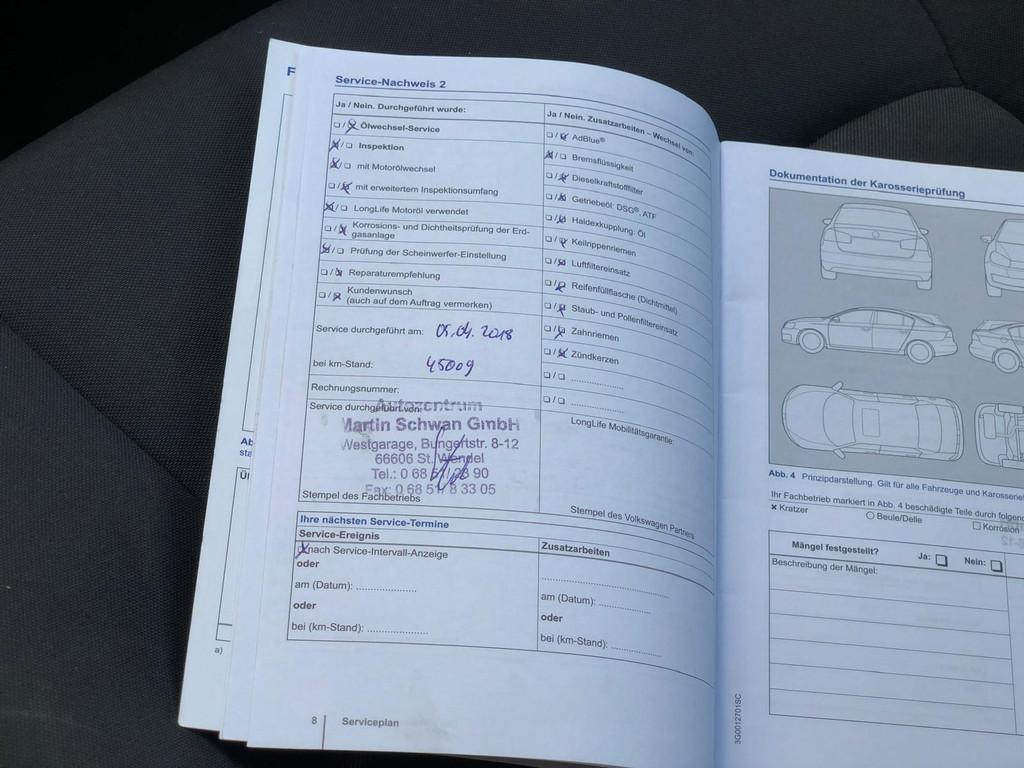 F
Service-Nachweis 2
Ja / Nein. Durchgeführt wurde:
☐ / ☒ Ölwechsel-Service
☒ / ☐ Inspektion
☒ / ☐ mit Motorölwechsel
☐ / ☒ mit erweitertem Inspektionsumfang
☒ / ☐ LongLife Motoröl verwendet
☐ / ☒ Korrosions- und Dichtheitsprüfung der Erd-
gasanlage
☒ / ☐ Prüfung der Scheinwerfer-Einstellung
☐ / ☒ Reparaturempfehlung
☐ / ☒ Kundenwunsch
(auch auf dem Auftrag vermerken)
Service durchgeführt am: 05.04.2018
bei km-Stand: 45009
Rechnungsnummer:
Service durchgeführt von:
Autozentrum
Martin Schwan GmbH
Westgarage, Bungertstr. 8-12
66606 St. Wendel
Tel.: 0 68 51/ 28 90
Fax: 0 68 51/ 8 33 05
Stempel des Fachbetriebs
Ja / Nein. Zusatzarbeiten – Wechsel von:
☐ / ☒ AdBlue®
☒ / ☐ Bremsflüssigkeit
☐ / ☒ Dieselkraftstofffilter
☐ / ☒ Getriebeöl: DSG®, ATF
☐ / ☒ Haldexkupplung: Öl
☐ / ☒ Keilrippenriemen
☐ / ☒ Luftfiltereinsatz
☐ / ☒ Reifenfüllflasche (Dichtmittel)
☐ / ☒ Staub- und Pollenfiltereinsatz
☐ / ☒ Zahnriemen
☐ / ☒ Zündkerzen
☐ / ☐ ....................
☐ / ☐ ....................
LongLife Mobilitätsgarantie:
Stempel des Volkswagen Partners
Ihre nächsten Service-Termine
Service-Ereignis
☒ nach Service-Intervall-Anzeige
oder
am (Datum): ....................
oder
bei (km-Stand): ....................
Zusatzarbeiten
....................
am (Datum): ....................
oder
bei (km-Stand): ....................
8 Serviceplan
Ab
sta
a)
Dokumentation der Karosserieprüfung
Abb. 4 Prinzipdarstellung. Gilt für alle Fahrzeuge und Karosserie
Ihr Fachbetrieb markiert in Abb. 4 beschädigte Teile durch folgen
× Kratzer
○ Beule/Delle
☐ Korrosion
Mängel festgestellt? Ja: ☐ Nein: ☐
Beschreibung der Mängel:
3G0012701SC